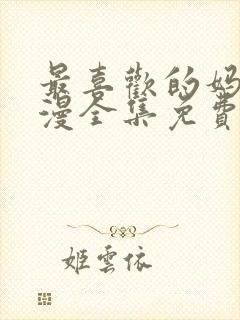 最喜歡的媽
漫全集免費
姬雲依